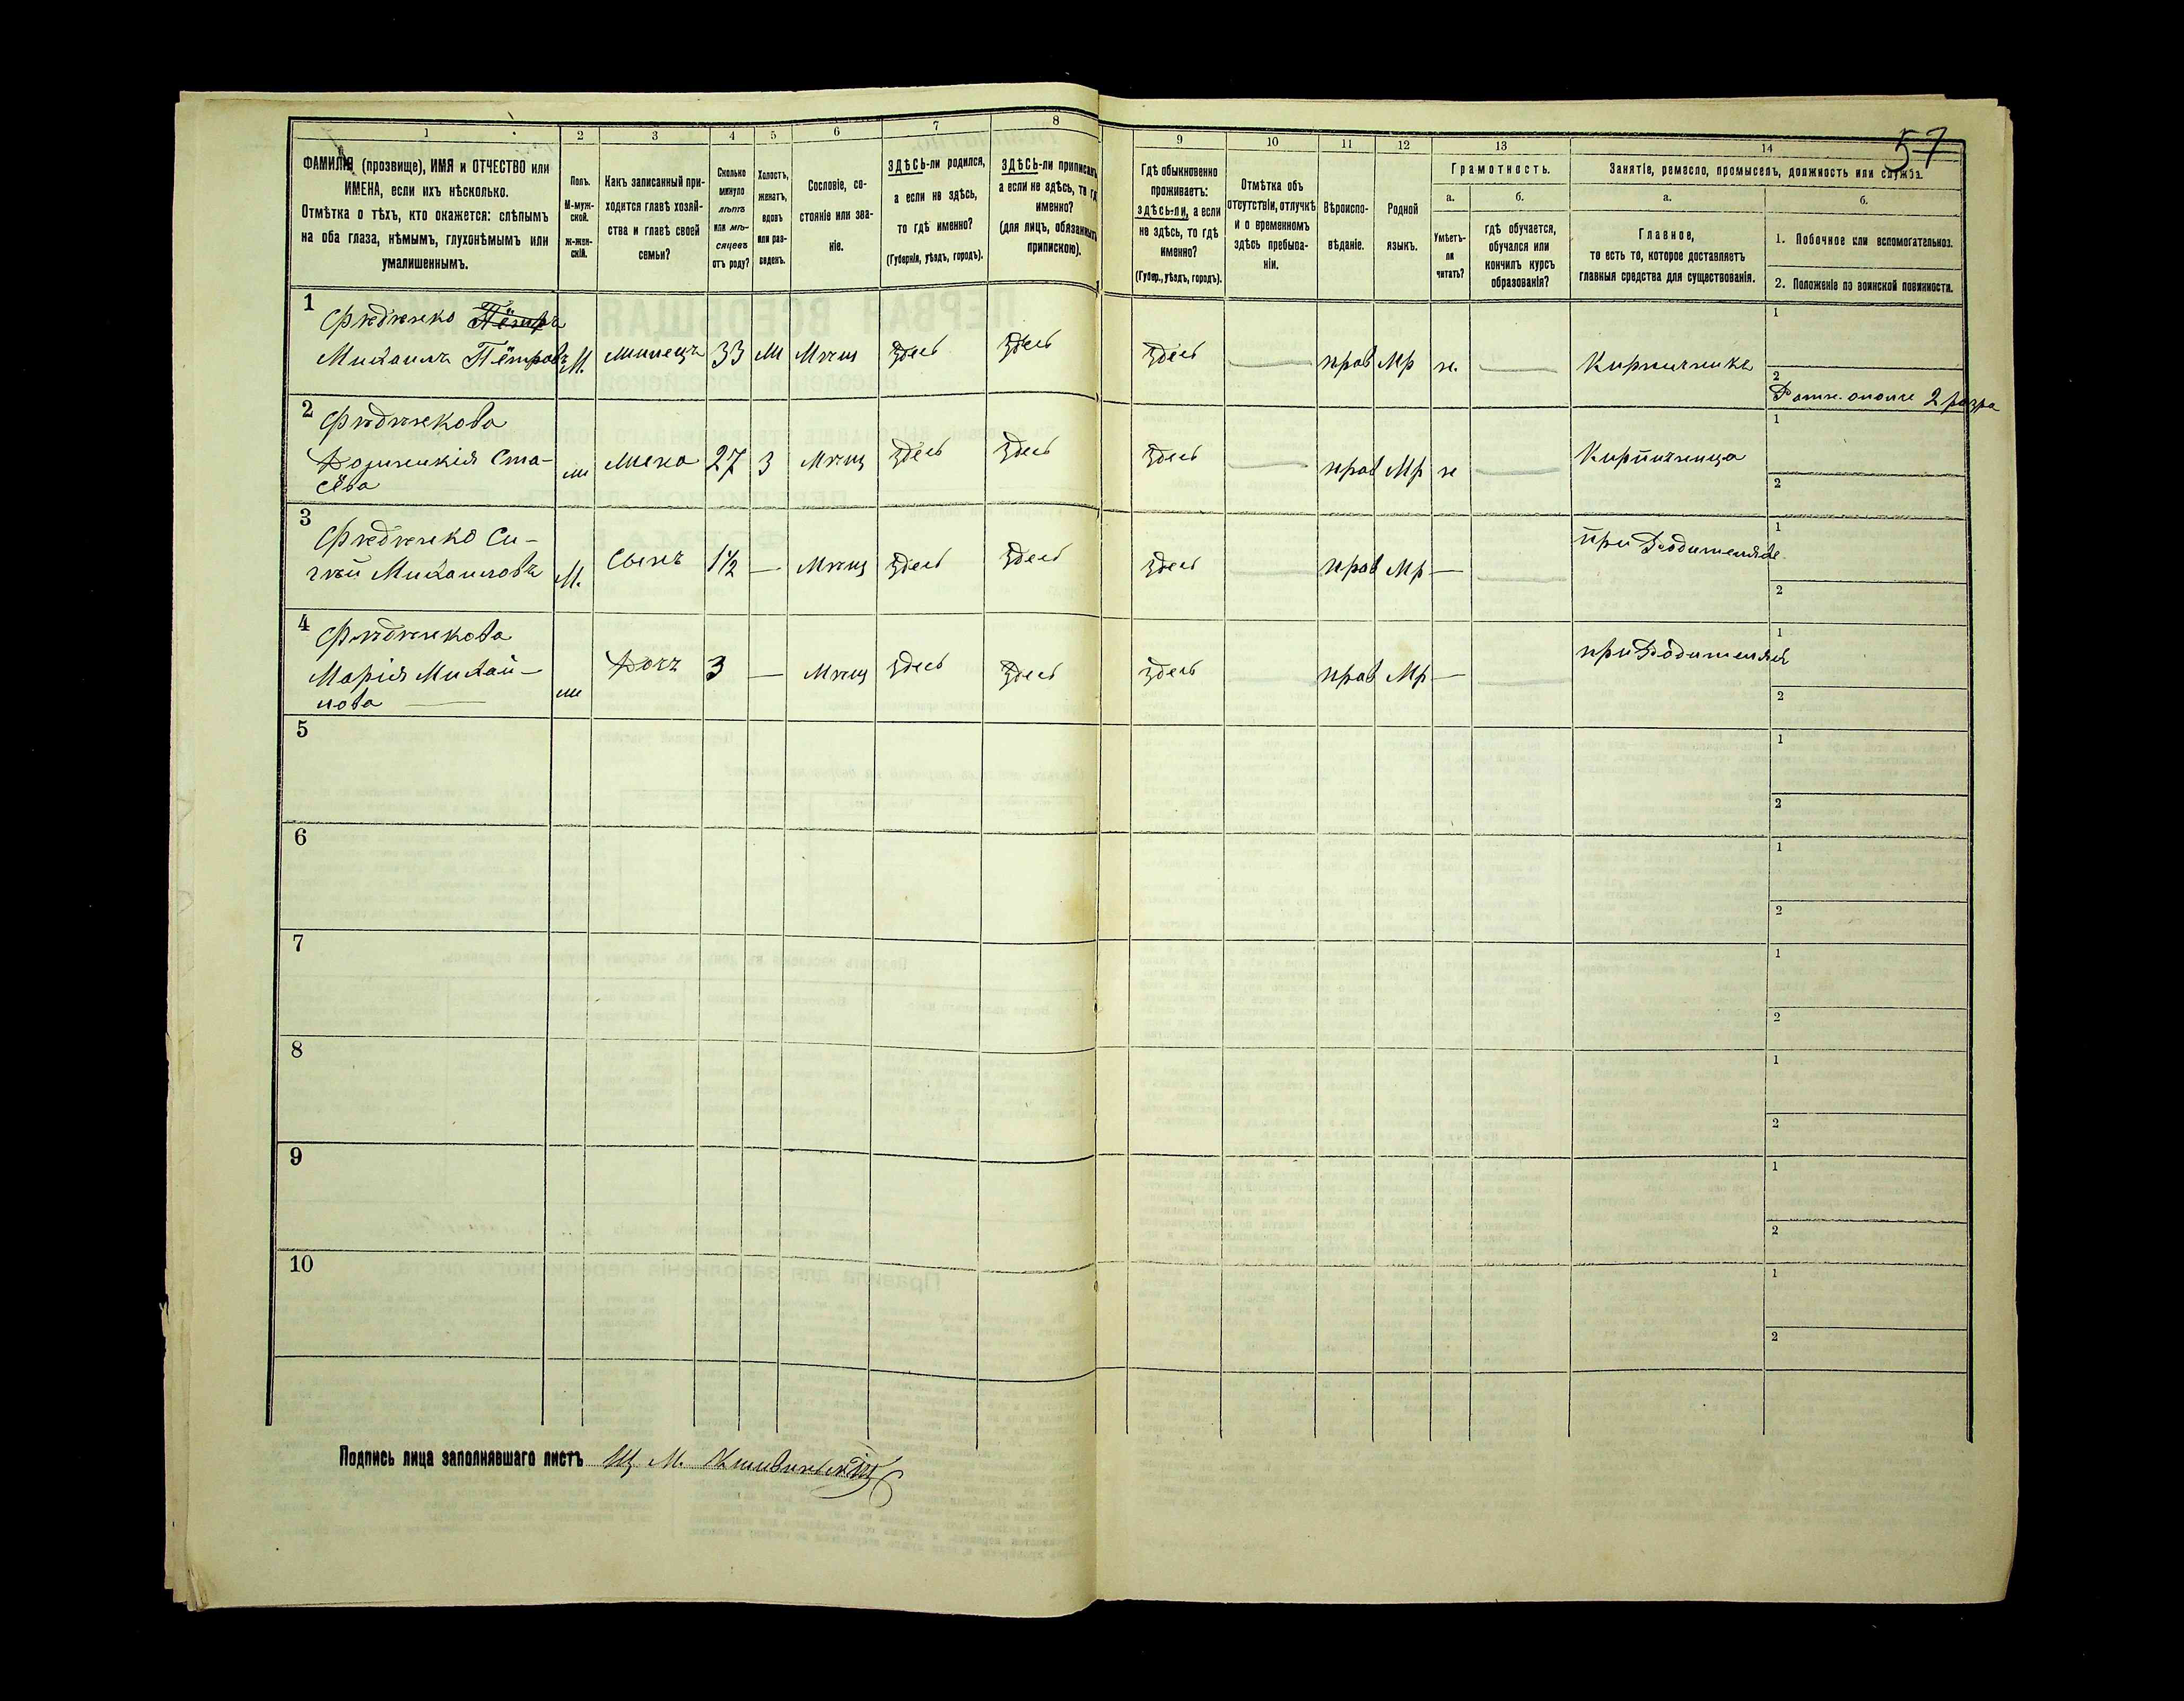 57
1
2
3
4
5
6
7
8
9
10
11
12
13
14
ФАМИЛІЯ (прозвище), ИМЯ и ОТЧЕСТВО или
ИМЕНА, если ихъ нѣсколько.
Отмѣтка о тѣхъ, кто окажется: слѣпымъ
на оба глаза, нѣмымъ, глухонѣмымъ или
умалишеннымъ.
Полъ.
М-муж-
ской.
ж-жен-
скій.
Какъ записанный при-
ходится главѣ хозяй-
ства и главѣ своей
семьи?
Сколько
минуло
лѣтъ
или мѣ-
сяцевъ
отъ роду?
Холостъ,
женатъ,
вдовъ
или раз-
веденъ.
Сословіе, со-
стояніе или зва-
ніе.
ЗДѢСЬ-ли родился,
а если не здѣсь,
то гдѣ именно?
(Губернія, уѣздъ, городъ).
ЗДѢСЬ-ли приписанъ,
а если не здѣсь, то гдѣ
именно?
(для лицъ, обязанныхъ
припискою).
Гдѣ обыкновенно
проживаетъ:
здѣсь-ли, а если
не здѣсь, то гдѣ
именно?
(Губер., уѣздъ, городъ).
Отмѣтка объ
отсутствіи, отлучкѣ
и о временномъ
здѣсь пребыва-
ніи.
Вѣроиспо-
вѣданіе.
Родной
языкъ.
Грамотность.
а.
Умѣетъ-
ли
читать?
б.
гдѣ обучается,
обучался или
кончилъ курсъ
образованія?
Занятіе, ремесло, промыселъ, должность или служба.
а.
Главное,
то есть то, которое доставляетъ
главныя средства для существованія.
б.
1. Побочное или вспомогательное.
2. Положеніе по воинской повинности.
1
Фѣдѣнко Пётръ
Михаилъ Пётровъ М. 33 Мѣщ здесь здесь здесь — прав Мр н. — Кирпичникъ
1
2
2 разря
2
Фѣдѣнкова
жена 27 З Мѣщ здесь здесь здесь — прав Мр н — Кирпичница
1
2
3
Фѣдѣнко
Михаиловъ М. Сынъ 1½ — Мѣщ здесь здесь здесь — прав Мр — — при Родителяхъ
1
2
4
Фѣдѣнкова
Марія Михай-
лова — ж Дочъ 3 — Мѣщ здесь здесь здесь — прав Мр — — при Родителяхъ
1
2
5
1
2
6
1
2
7
1
2
8
1
2
9
1
2
10
1
2
Подпись лица заполнявшаго листъ